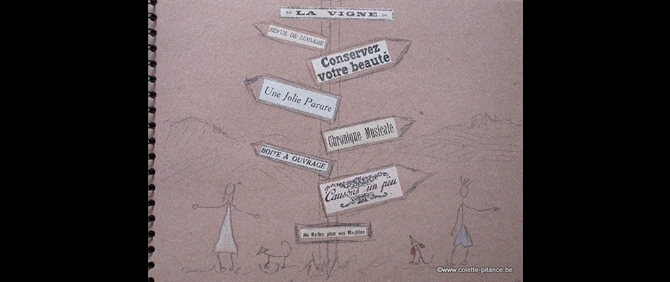 LA VIGNE
REVUE DE
Conservez
votre beauté
Une Jolie Parure
Chronique Musicale
BOITE A OUVRAGE
Causons un peu
Ne Battez plus vos Meubles
©www.colette-pitance.be